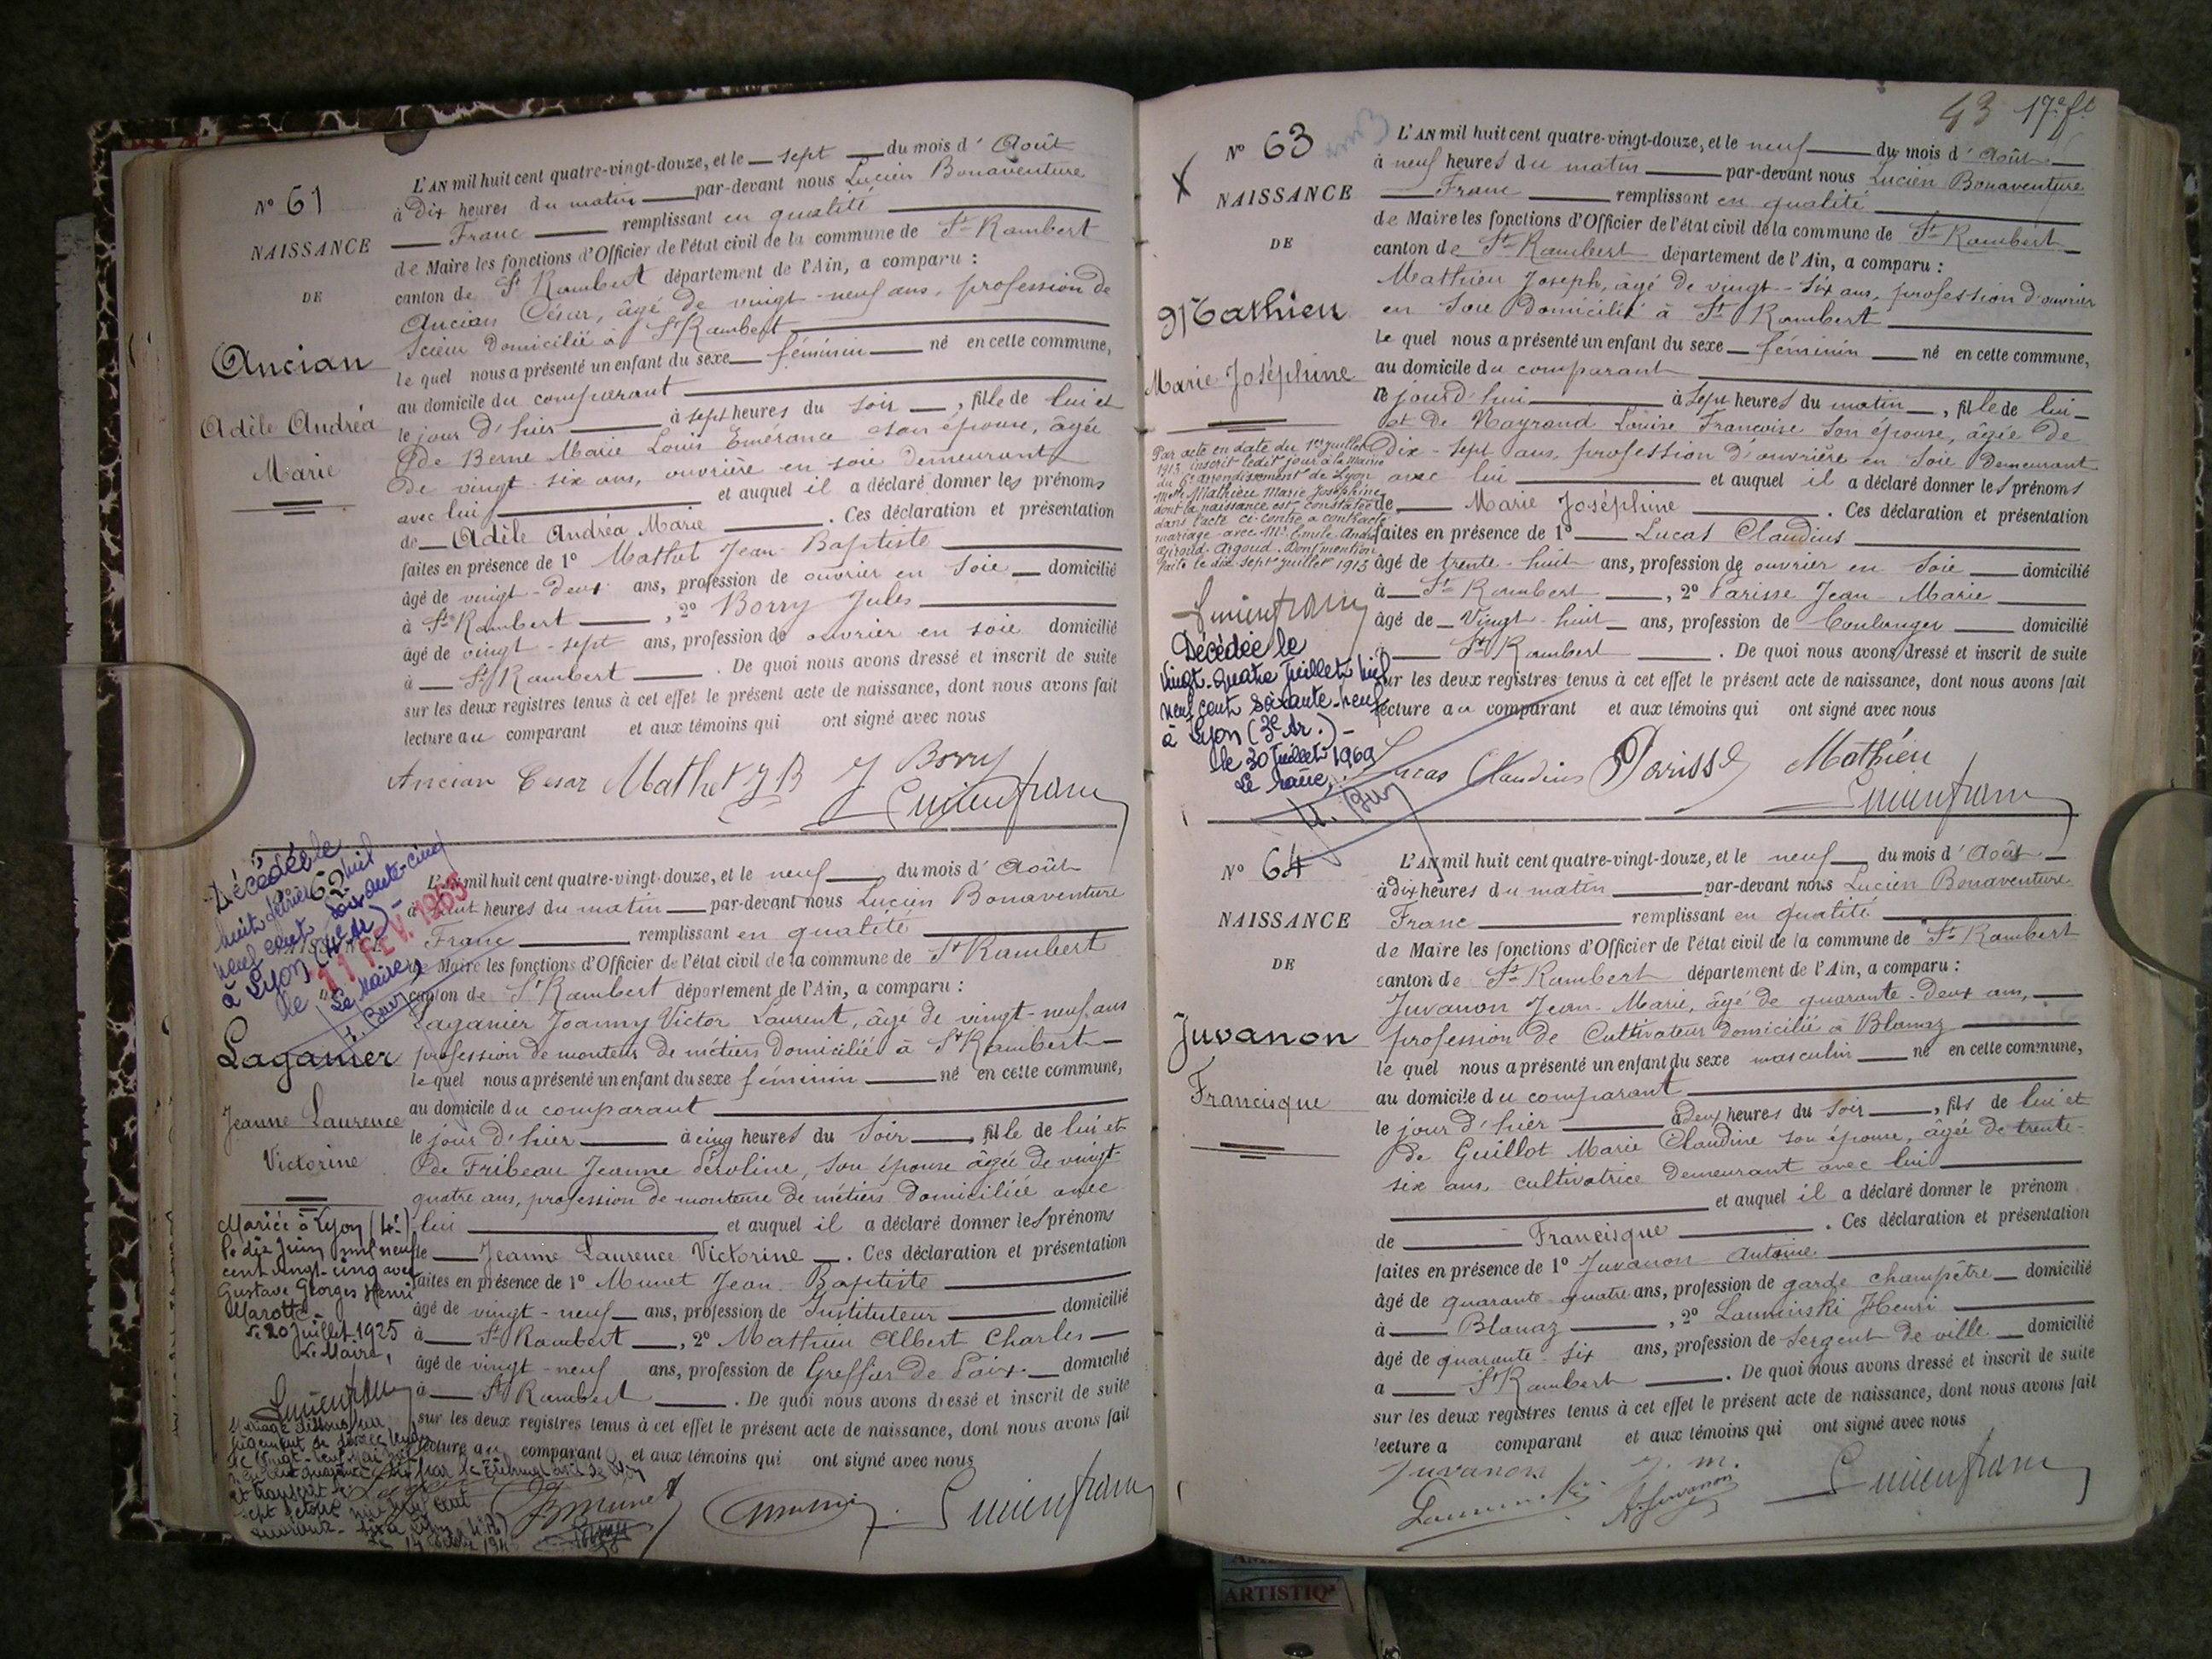 N° 61
NAISSANCE
DE
Ancian
Adèle Andréa
Marie
L'AN mil huit cent quatre-vingt-douze, et le sept du mois d'Août
à Dix heures du matin par-devant nous Lucien Bonaventure
Franc remplissant en qualité
de Maire les fonctions d'Officier de l'état civil de la commune de St Rambert
canton de St Rambert département de l'Ain, a comparu :
Ancian César, âgé de vingt-neuf ans, profession de
Scieur Domicilié à St Rambert
le quel nous a présenté un enfant du sexe féminin né en cette commune,
au domicile du comparant
le jour d'hier à sept heures du soir, fille de lui et
de Berne Marie Louis Emérance son épouse, âgée
de vingt-six ans, ouvrière en soie demeurant
avec lui et auquel il a déclaré donner les prénoms
de Adèle Andréa Marie. Ces déclaration et présentation
faites en présence de 1° Mathet Jean-Baptiste
âgé de vingt-deux ans, profession de ouvrier en soie domicilié
à St Rambert, 2° Borry Jules
âgé de vingt-sept ans, profession de ouvrier en soie domicilié
à St Rambert. De quoi nous avons dressé et inscrit de suite
sur les deux registres tenus à cet effet le présent acte de naissance, dont nous avons fait
lecture au comparant et aux témoins qui ont signé avec nous
Ancian Cesar Mathet J B J Borry
Lucien franc
Décédée le
huit février mil
neuf cent soixante-cinq
à Lyon
le 11 FEV. 1965
Le Maire,
Laganier
Jeanne Laurence
Victorine
Mariée à Lyon (4e)
le dix Juin mil neuf
cent vingt-cinq avec
Gustave Georges Henri
Marotte
Le 20 Juillet 1925
Le Maire,
Lucien franc
L'AN mil huit cent quatre-vingt-douze, et le neuf du mois d'Août
à huit heures du matin par-devant nous Lucien Bonaventure
Franc remplissant en qualité
de Maire les fonctions d'Officier de l'état civil de la commune de St Rambert
canton de St Rambert département de l'Ain, a comparu :
Laganier Joanny Victor Laurent, âgé de vingt-neuf ans
profession de monteur de métiers domicilié à St Rambert
le quel nous a présenté un enfant du sexe féminin né en cette commune,
au domicile du comparant
le jour d'hier à cinq heures du soir, fille de lui et
de Fribeau Jeanne son épouse âgée de vingt-
quatre ans, profession de monteuse de métiers domiciliée avec
lui et auquel il a déclaré donner les prénoms
de Jeanne Laurence Victorine. Ces déclaration et présentation
faites en présence de 1° Munet Jean-Baptiste
âgé de vingt-neuf ans, profession de Instituteur domicilié
à St Rambert, 2° Mathieu Albert Charles
âgé de vingt-neuf ans, profession de Greffier de Paix domicilié
à St Rambert. De quoi nous avons dressé et inscrit de suite
sur les deux registres tenus à cet effet le présent acte de naissance, dont nous avons fait
lecture au comparant et aux témoins qui ont signé avec nous
Munet Lucien franc
43 17e ft
N° 63
NAISSANCE
DE
Mathieu
Marie Joséphine
Par acte en date du 1er juillet
1913 inscrit ledit jour à la mairie
du 6e arrondissement de Lyon
Melle Mathieu Marie Joséphine
dont la naissance est constatée
dans l'acte ci-contre a contracté
mariage avec Mr Emile André
Giroud-Argoud. Dont mention
faite le dix-sept juillet 1913
Lucien franc
Décédée le
vingt-quatre Juillet mil
neuf cent soixante-neuf
à Lyon (3e Ar.)
le 30 Juillet 1969
Le Maire,
L'AN mil huit cent quatre-vingt-douze, et le neuf du mois d'Août
à neuf heures du matin par-devant nous Lucien Bonaventure
Franc remplissant en qualité
de Maire les fonctions d'Officier de l'état civil de la commune de St Rambert
canton de St Rambert département de l'Ain, a comparu :
Mathieu Joseph, âgé de vingt-six ans, profession d'ouvrier
en soie Domicilié à St Rambert
le quel nous a présenté un enfant du sexe féminin né en cette commune,
au domicile du comparant
ce jourd'hui à sept heures du matin, fille de lui
et de Mayrand Louise Francoise son épouse, âgée de
dix-sept ans, profession d'ouvrière en soie Demeurant
avec lui et auquel il a déclaré donner les prénoms
de Marie Joséphine. Ces déclaration et présentation
faites en présence de 1° Lucas Claudius
âgé de trente-huit ans, profession de ouvrier en soie domicilié
à St Rambert, 2° Parisse Jean-Marie
âgé de Vingt-huit ans, profession de boulanger domicilié
à St Rambert. De quoi nous avons dressé et inscrit de suite
sur les deux registres tenus à cet effet le présent acte de naissance, dont nous avons fait
lecture au comparant et aux témoins qui ont signé avec nous
Lucas Claudius Parisse Mathieu
Lucien franc
N° 64
NAISSANCE
DE
Juvanon
Francisque
L'AN mil huit cent quatre-vingt-douze, et le neuf du mois d'Août
à dix heures du matin par-devant nous Lucien Bonaventure
Franc remplissant en qualité
de Maire les fonctions d'Officier de l'état civil de la commune de St Rambert
canton de St Rambert département de l'Ain, a comparu :
Juvanon Jean-Marie, âgé de quarante-deux ans,
profession de Cultivateur domicilié à Blanaz
le quel nous a présenté un enfant du sexe masculin né en cette commune,
au domicile du comparant
le jour d'hier à deux heures du soir, fils de lui et
de Guillot Marie Claudine son épouse, âgée de trente-
six ans, cultivatrice demeurant avec lui
et auquel il a déclaré donner le prénom
de Francisque. Ces déclaration et présentation
faites en présence de 1° Juvanon Antoine
âgé de quarante-quatre ans, profession de garde champêtre domicilié
à Blanaz, 2° Lanminski Henri
âgé de quarante-six ans, profession de Sergent de ville domicilié
à St Rambert. De quoi nous avons dressé et inscrit de suite
sur les deux registres tenus à cet effet le présent acte de naissance, dont nous avons fait
lecture a comparant et aux témoins qui ont signé avec nous
Juvanon J. M.
Juvanon Lucien franc
ARTISTIQ